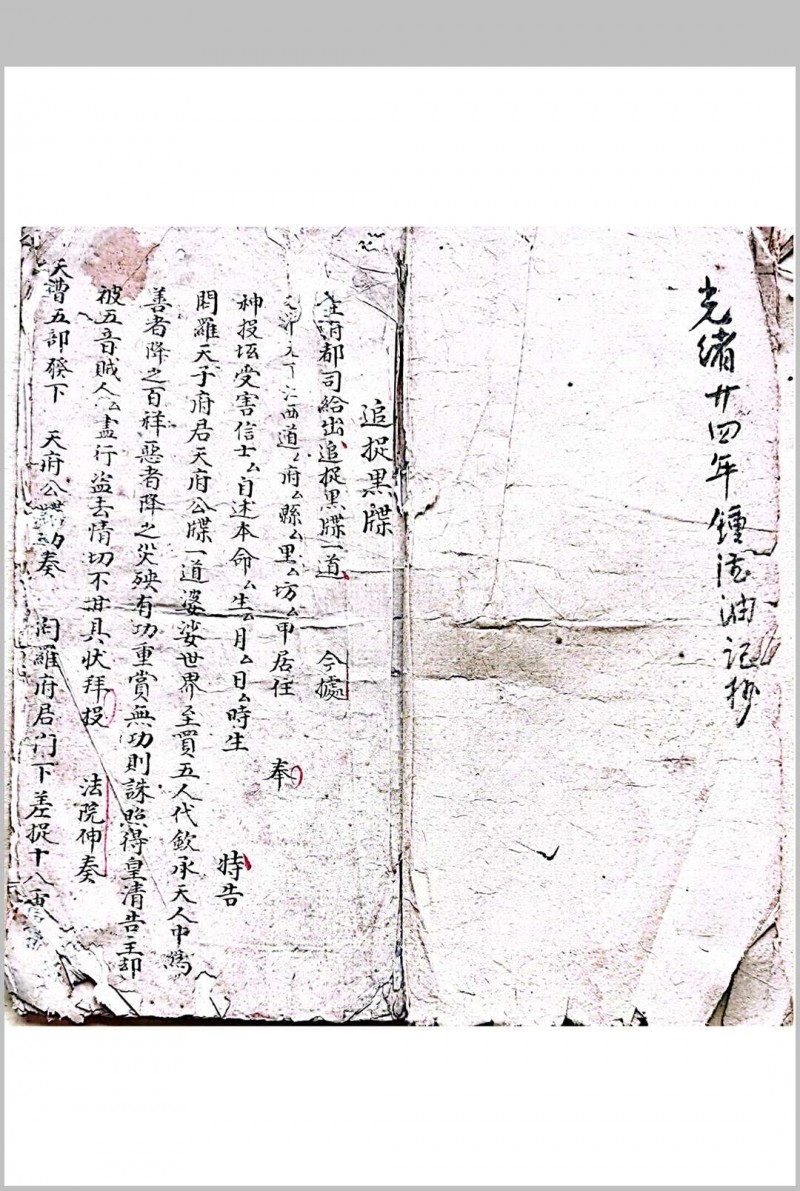 光绪廿四年鍾 油记抄
追捉黑牒
府都司給出追捉黑牒一道 今據
西道厶府厶縣厶里厶坊厶甲居住 奉
神投坛受害信士厶自述本命厶生厶月厶日厶時生 特告
閻羅天子府君天府公牒一道婆娑世界至買五人代欽承天人中為
善者降之百祥惡者降之災殃有功重賞無功則誅照得皇清告主却
被五音賊人厶盡行盜去情切不甘具状拜投 法院伸奏
天曹五部發下 天府公牒 奏 閻羅府君門下差捉十八重